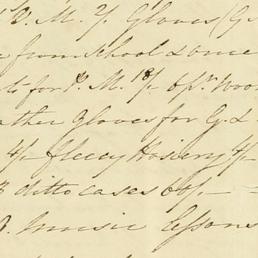 V. M. 2/ Gloves /G.
from school & once
to for D. M. 18/- 6 pr. woo
ather Gloves for G. &
4/- fleecy Hosiery 4/-
3 ditto cases 60/-
3. music lessons